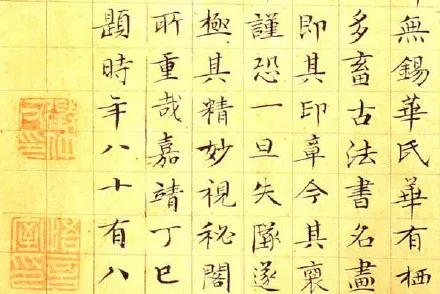 無錫華氏華有栖
多畜古法書名畫
即其印章今其裒
謹恐一旦失墜遂
極其精妙視秘閣
所重哉嘉靖丁巳
題時年八十有八